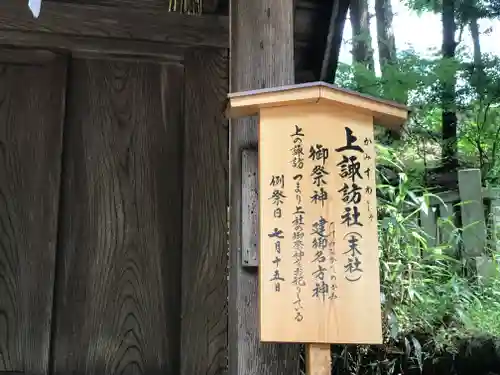 上諏訪社(末社)
かみすわしゃ
御祭神 建御名方神
たけみなかたのかみ
上の諏訪 つまり上社の御祭神をお祀りしている
例祭日 七月十五日